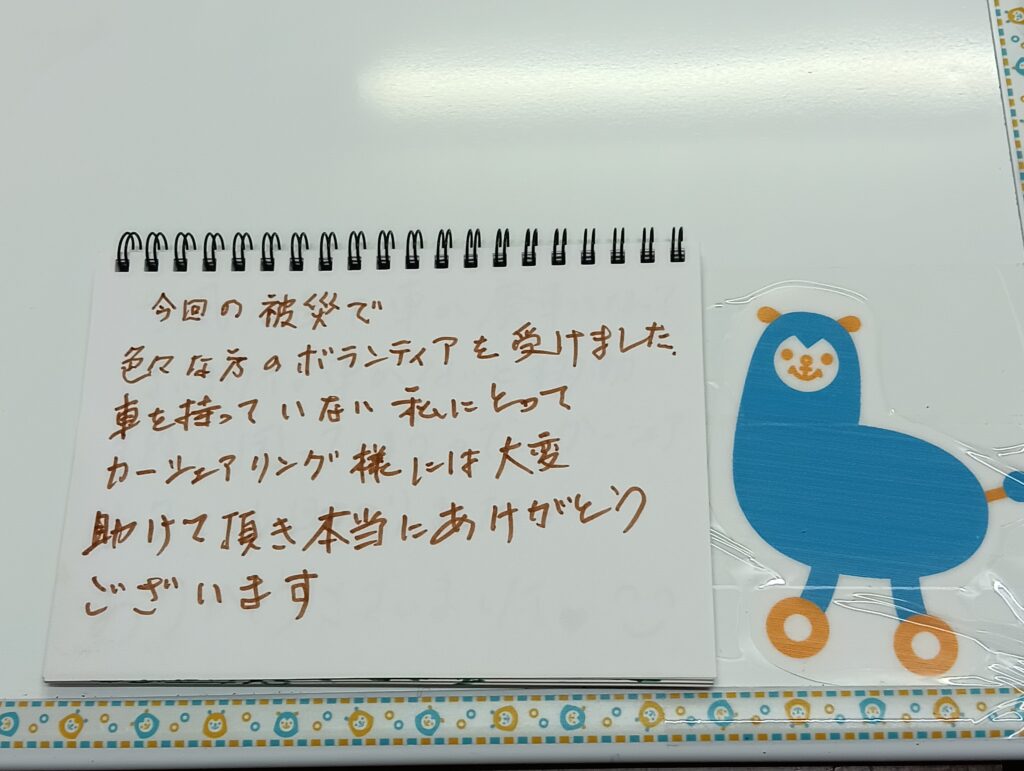 今回の被災で
色々な方のボランティアを受けました.
車を持っていない私にとって
カーシェアリング様には大変
助けて頂き本当にありがとう
ございます